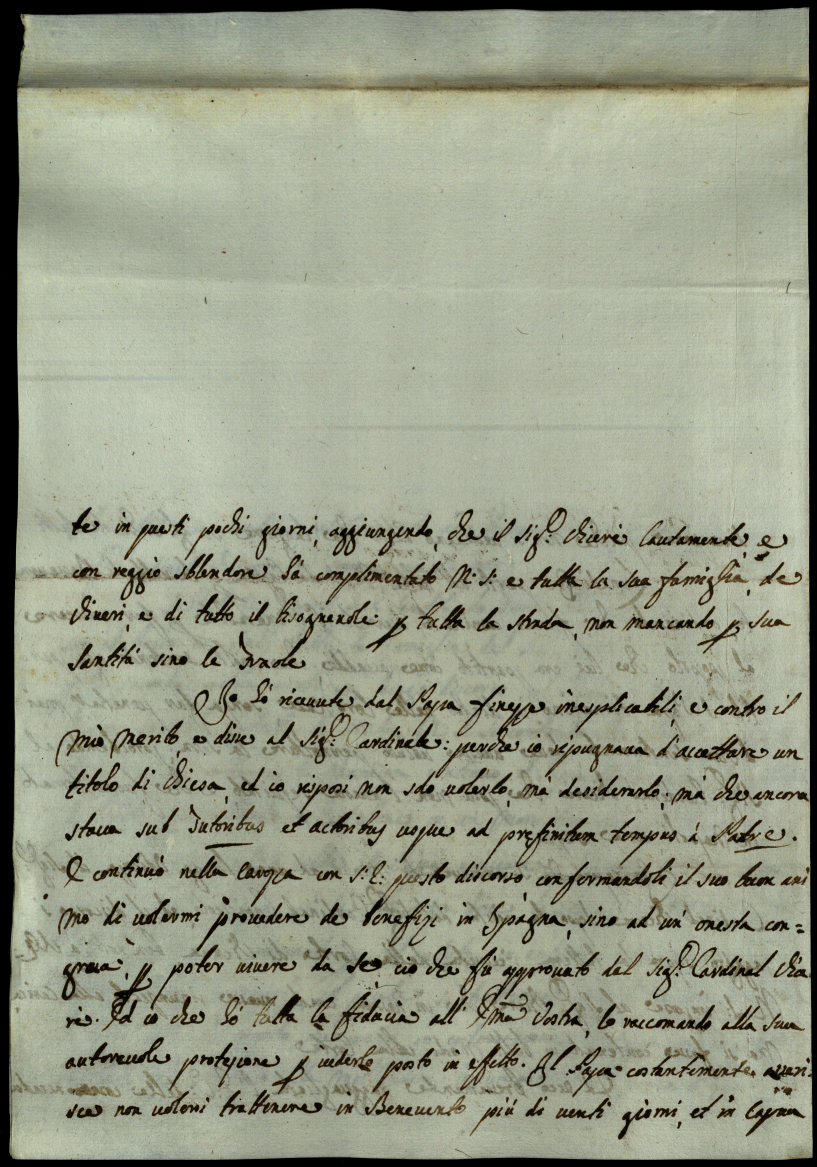 te in questi pochi giorni, aggiungendo, che il sig.r Chieri lautamente, e
con reggio sblendore hà complimentato N: S: e tutta la sua famiglia, de
viveri, e di tutto il bisognevole p tutta la strada, non mancando p sua
Santità sino le
Io hò ricevute dal Papa finezze inesplicabili, e contro il
mio merito, e disse al Sig.r Cardinale: perche io ripugnava d'accettare un
titolo di chiesa, et io risposi non solo volerlo, mà desiderarlo; mà che ancora
stava sub Tutoribus et actoribus usque ad prefinitum tempus à Patre.
E continuò nella Carozza con S: E: questo discorso, confermandoli il suo buon ani
mo di volermi provedere de benefizi in Spagna, sino ad un' onesta con=
grua, p poter vivere da se, ciò che fù approvato dal Sig.r Cardinal Chie
ri. Ed io che hò tutta la fiducia all' Emã Vostra, lo raccomando alla sua
autorevole protezione p vederlo posto in effetto. Il Papa costantemente asseri
sce non volersi trattenere in Benevento più di venti giorni, et in Capua